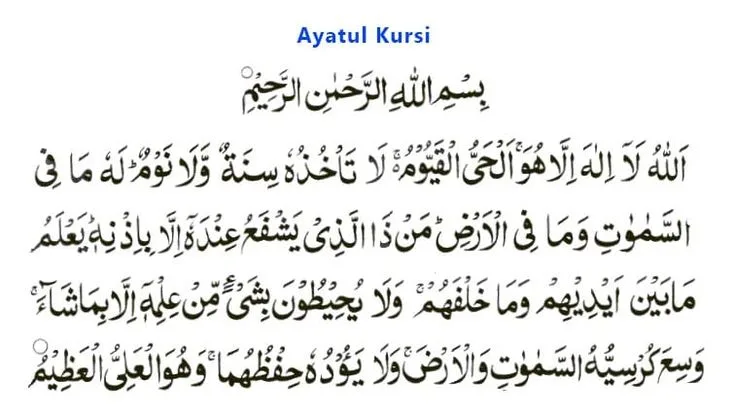 Ayatul Kursi
بِسْمِ اللهِ الرَّحْمٰنِ الرَّحِيْمِ
اَللهُ لَآ اِلٰهَ اِلَّا هُوَۚ اَلْحَىُّ الْقَيُّوْمُ ۚ لَا تَاْخُذُهٗ سِنَةٌ وَّلَا نَوْمٌ ؕ لَهٗ مَا فِى
السَّمٰوٰتِ وَمَا فِى الْاَرْضِ ؕ مَنْ ذَا الَّذِىْ يَشْفَعُ عِنْدَهٗۤ اِلَّا بِاِذْنِهٖ ؕ يَعْلَمُ
مَا بَيْنَ اَيْدِيْهِمْ وَمَا خَلْفَهُمْ ۚ وَلَا يُحِيْطُوْنَ بِشَىْءٍ مِّنْ عِلْمِهٖۤ اِلَّا بِمَا شَآءَ ۚ
وَسِعَ كُرْسِيُّهُ السَّمٰوٰتِ وَالْاَرْضَ ۚ وَلَا يَؤُدُهٗ حِفْظُهُمَا ۚ وَهُوَ الْعَلِىُّ الْعَظِيْمُ